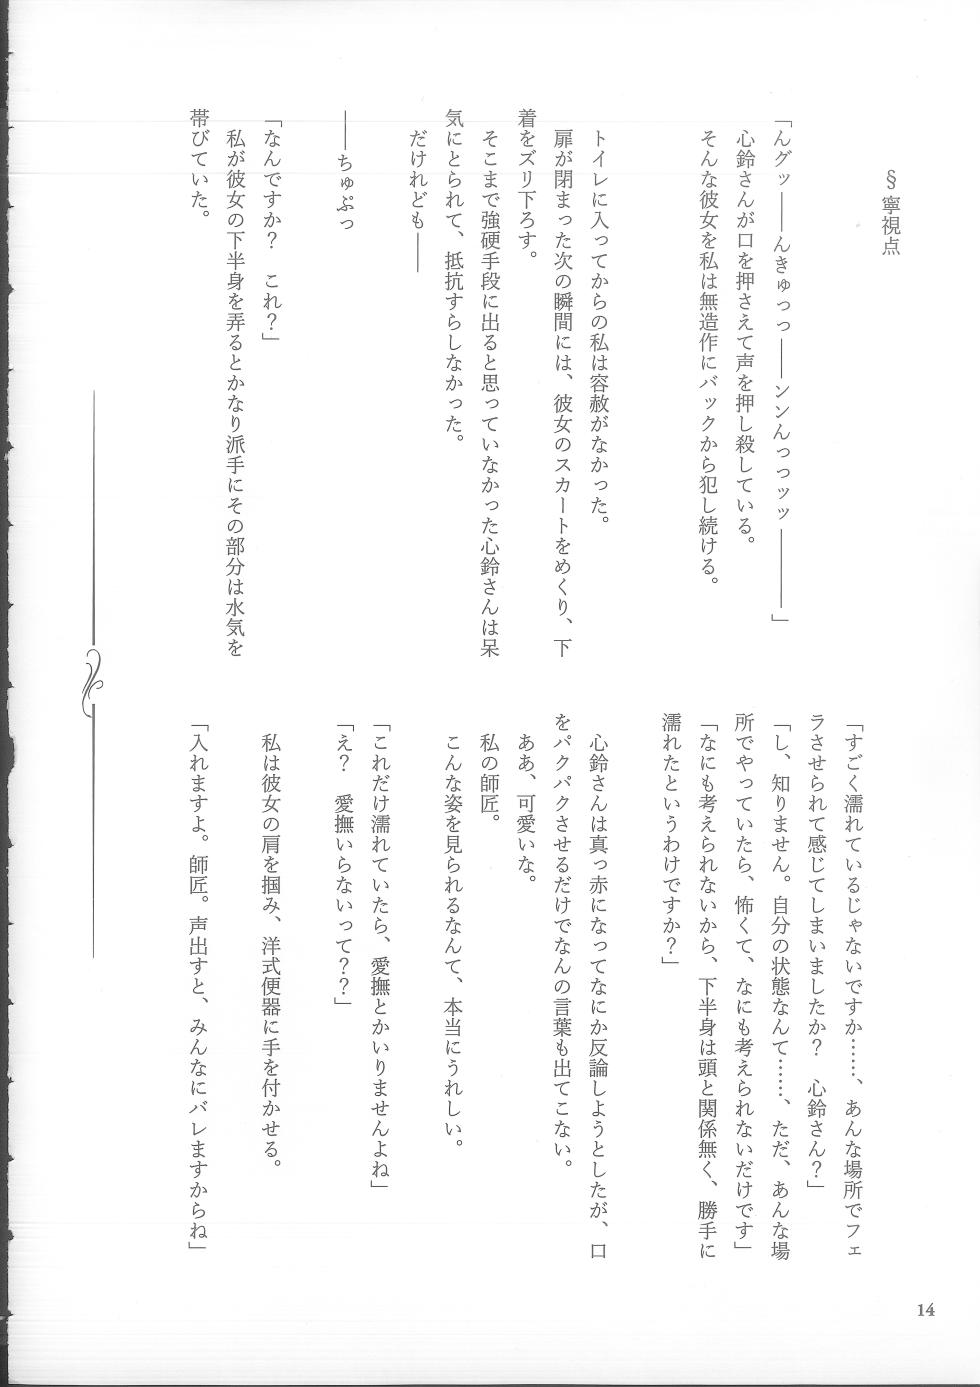 §寧視点
「んグッ――んきゅっっ――ンンんっっッッ――――」
心鈴さんが口を押さえて声を押し殺している。
そんな彼女を私は無造作にバックから犯し続ける。
トイレに入ってからの私は容赦がなかった。
扉が閉まった次の瞬間には、彼女のスカートをめくり、下
着をズリ下ろす。
そこまで強硬手段に出ると思っていなかった心鈴さんは呆
気にとられて、抵抗すらしなかった。
だけれども――
――ちゅぷっ
「なんですか？　これ？」
私が彼女の下半身を弄るとかなり派手にその部分は水気を
帯びていた。
「すごく濡れているじゃないですか……、あんな場所でフェ
ラさせられて感じてしまいましたか？　心鈴さん？」
「し、知りません。自分の状態なんて……、ただ、あんな場
所でやっていたら、怖くて、なにも考えられないだけです」
「なにも考えられないから、下半身は頭と関係無く、勝手に
濡れたというわけですか？」
心鈴さんは真っ赤になってなにか反論しようとしたが、口
をパクパクさせるだけでなんの言葉も出てこない。
ああ、可愛いな。
私の師匠。
こんな姿を見られるなんて、本当にうれしい。
「これだけ濡れていたら、愛撫とかいりませんよね」
「え？　愛撫いらないって？？」
私は彼女の肩を掴み、洋式便器に手を付かせる。
「入れますよ。師匠。声出すと、みんなにバレますからね」
14